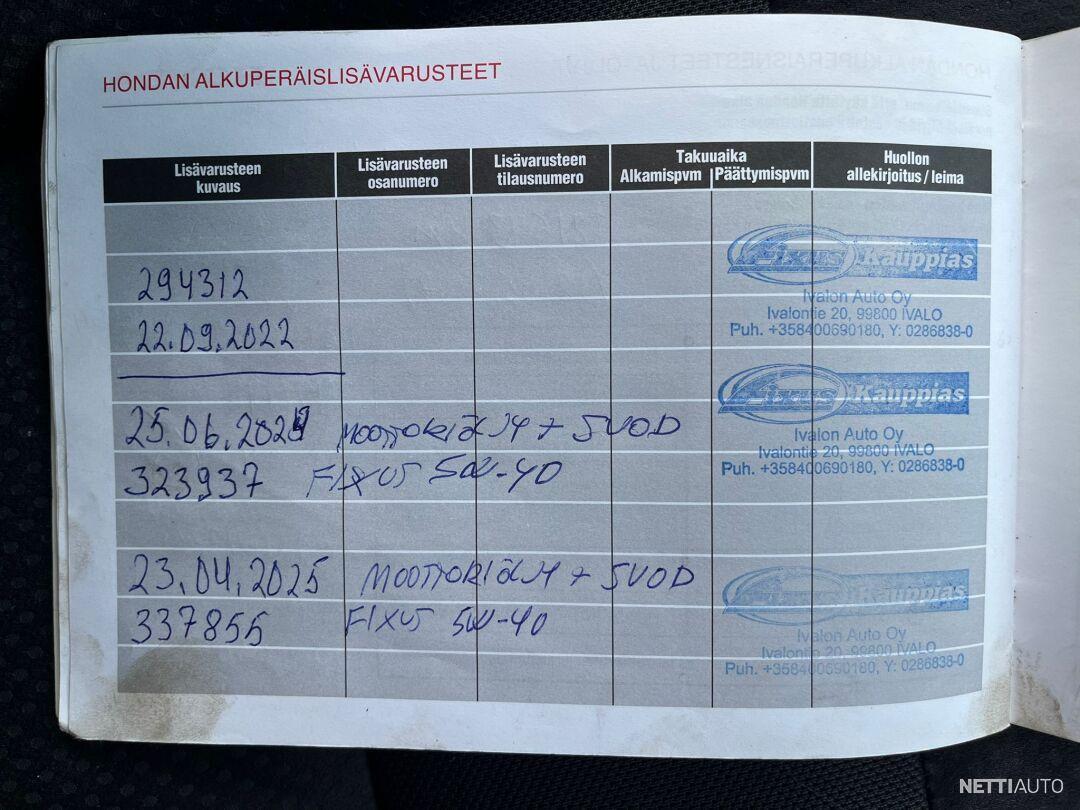 HONDAN ALKUPERÄISLISÄVARUSTEET
Lisävarusteen kuvaus
Lisävarusteen osanumero
Lisävarusteen tilausnumero
Takuuaika
Alkamispvm
Päättymispvm
Huollon allekirjoitus / leima
Fixus Kauppias
294312
Ivalon Auto Oy
Ivalontie 20, 99800 IVALO
Puh. +358400690180, Y: 0286838-0
22.09.2022
Fixus Kauppias
25.06.2024 MOOTTORIÖLJY + SUOD
Ivalon Auto Oy
Ivalontie 20, 99800 IVALO
Puh. +358400690180, Y: 0286838-0
323937 FIXUS 5W-40
23.04.2025 MOOTTORIÖLJY + SUOD
Fixus Kauppias
337855 FIXUS 5W-40
Ivalon Auto Oy
Ivalontie 20, 99800 IVALO
Puh. +358400690180, Y: 0286838-0
NETTIAUTO